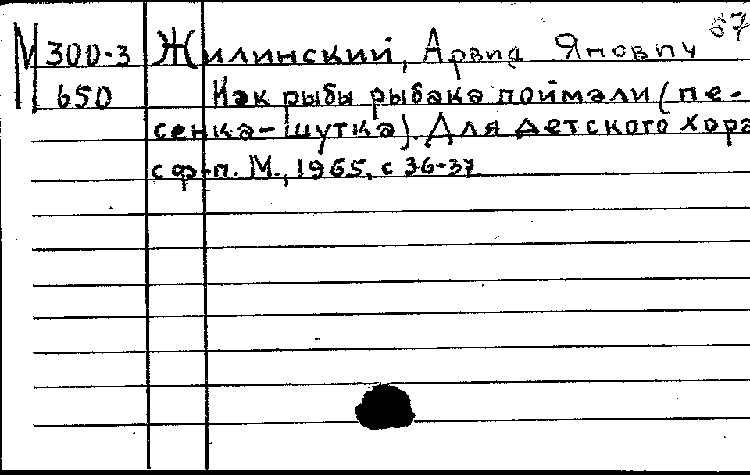 67
М 300-3 Жилинский, Арвид Янович
650 Как рыбы рыбака поймали (пе-
сенка-шутка). Для детского хора
с ф-п. М., 1965, с 36-37